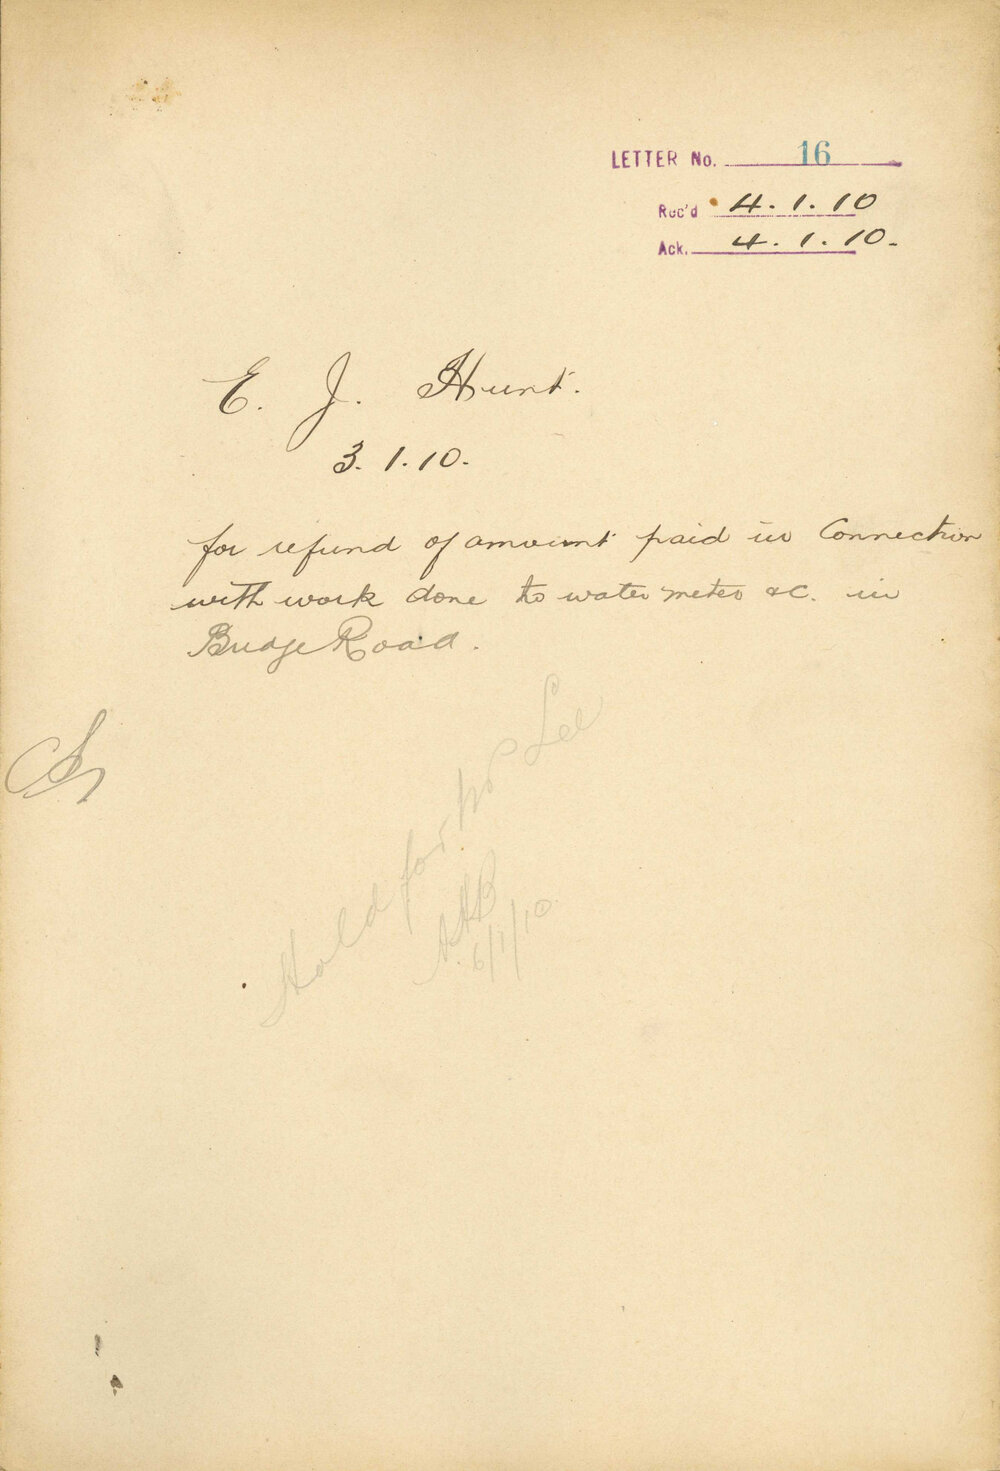 LETTER No. 16
Rec'd 4.1.10
Ack. 4.1.10.
E. J. Hunt.
3.1.10.
for refund of amount paid in Connection
with work done to water meter &c. in
Bridge Road.
Hold for Mr Lee
AAB
6/1/10